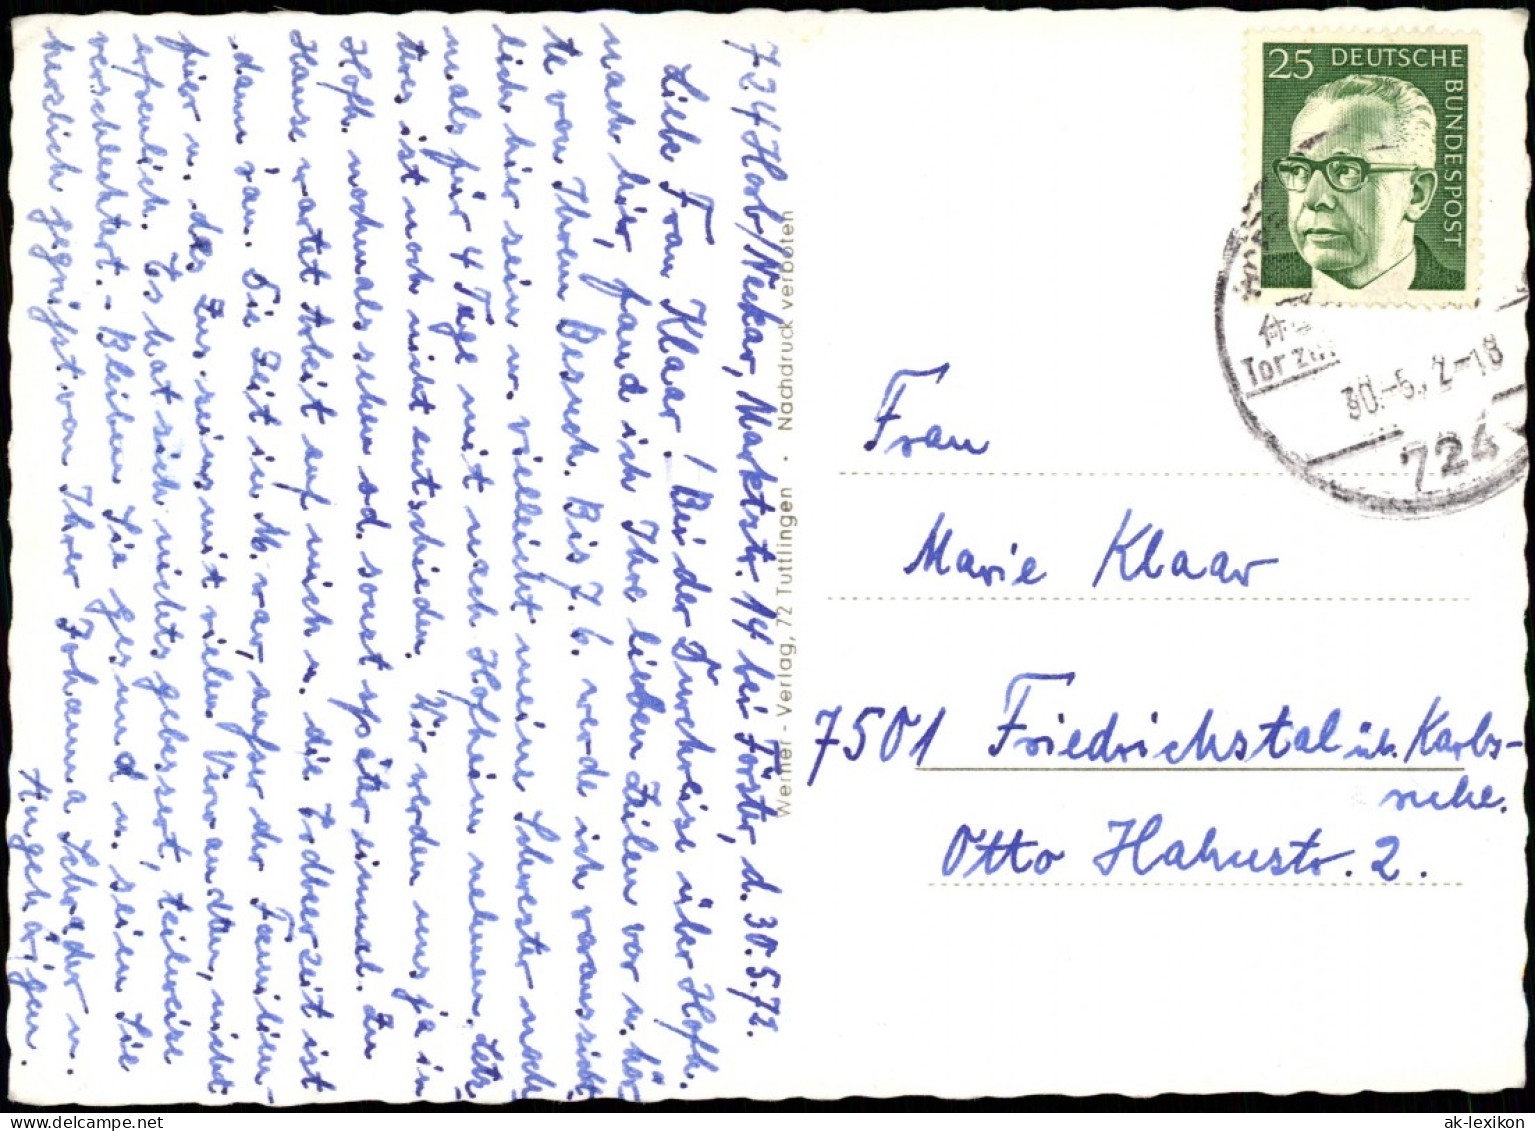 724 Horb/Neckar, Marktstr. 14 bei Förster, d. 30.5.72.
Liebe Frau Klaar! Bei der Durchreise über Hofh.
nach hier, fand ich Ihre lieben Zeilen vor u. hör
te von Ihrem Besuch. Bis 7.6. werde ich voraussicht
lich hier sein u. vielleicht meine Schwester noch
mals für 4 Tage mit nach Hofheim nehmen. Letz
teres ist noch nicht entschieden. Wir werden uns ja in
Hofh. nochmals sehen od. sonst später einmal. Zu
Hause wartet Arbeit auf mich u. die Erdbeerzeit ist
dann ran. Die Zeit in M. war, außer der Familien-
feier u. des Zus.seins mit vielen Verwandten, nicht
erfreulich. Es hat sich nichts gebessert, teilweise
verschlechtert. - Bleiben Sie gesund u. seien Sie
herzlich gegrüßt von Ihrer Johanna Schrader u.
Angehörigen.
Werner - Verlag, 72 Tuttlingen · Nachdruck verboten
25 DEUTSCHE
BUNDESPOST
30.-5.72-18
724
Frau
Marie Klaar
7501 Friedrichstal üb. Karls-
ruhe.
Otto Hahnstr. 2.
ak-lexikon